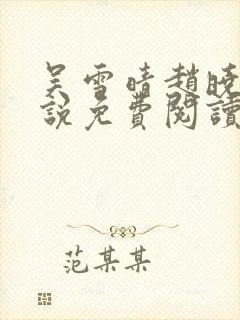 吴雪晴赵晓
說免費閱讀
范某某